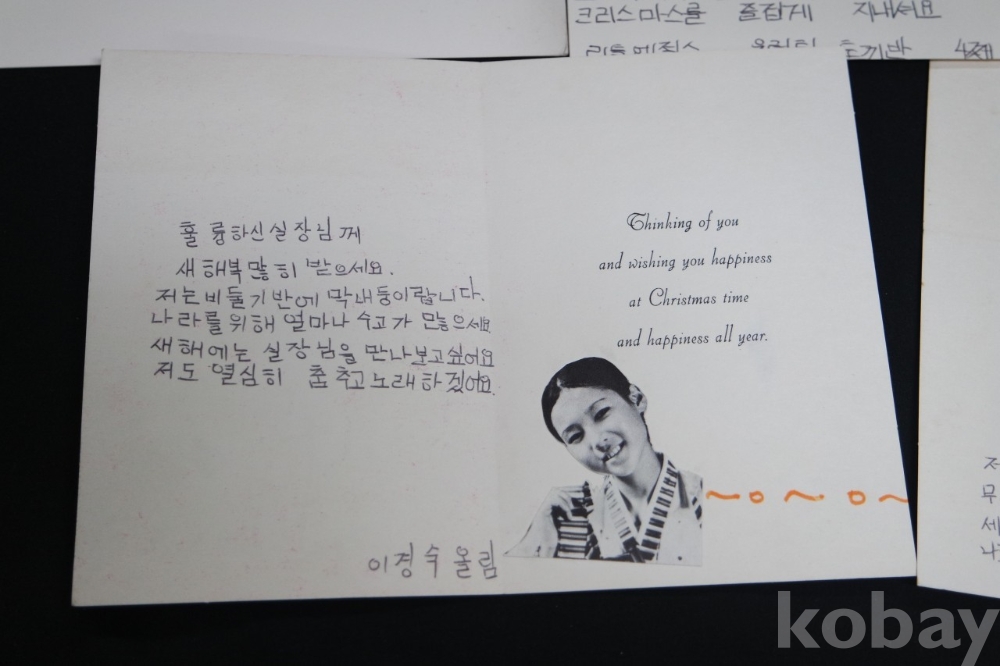 크리스마스를 즐겁게 지내세요
토끼반
훌륭하신실장님께
새해복많히 받으세요.
저는비둘기반에 막내둥이랍니다.
나라를위해 얼마나 수고가 많으세요
새해에는 실장님을 만나보고싶어요
저도 열심히 춤추고노래하겠어요.
이경숙올림
Thinking of you
and wishing you happiness
at Christmas time
and happiness all year.
저
무
세
나
kobay